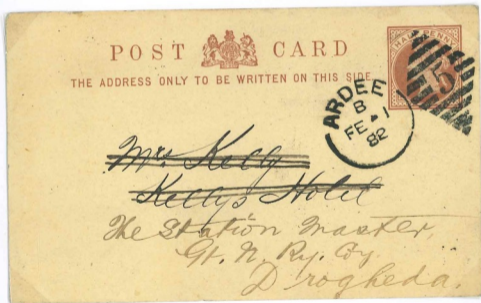 POST CARD
THE ADDRESS ONLY TO BE WRITTEN ON THIS SIDE.
HALF PENNY
15
ARDEE
B
FE 1
82
Mrs Kelly
Kellys Hotel
The Station Master,
Gt. N. Ry. Coy
Drogheda.